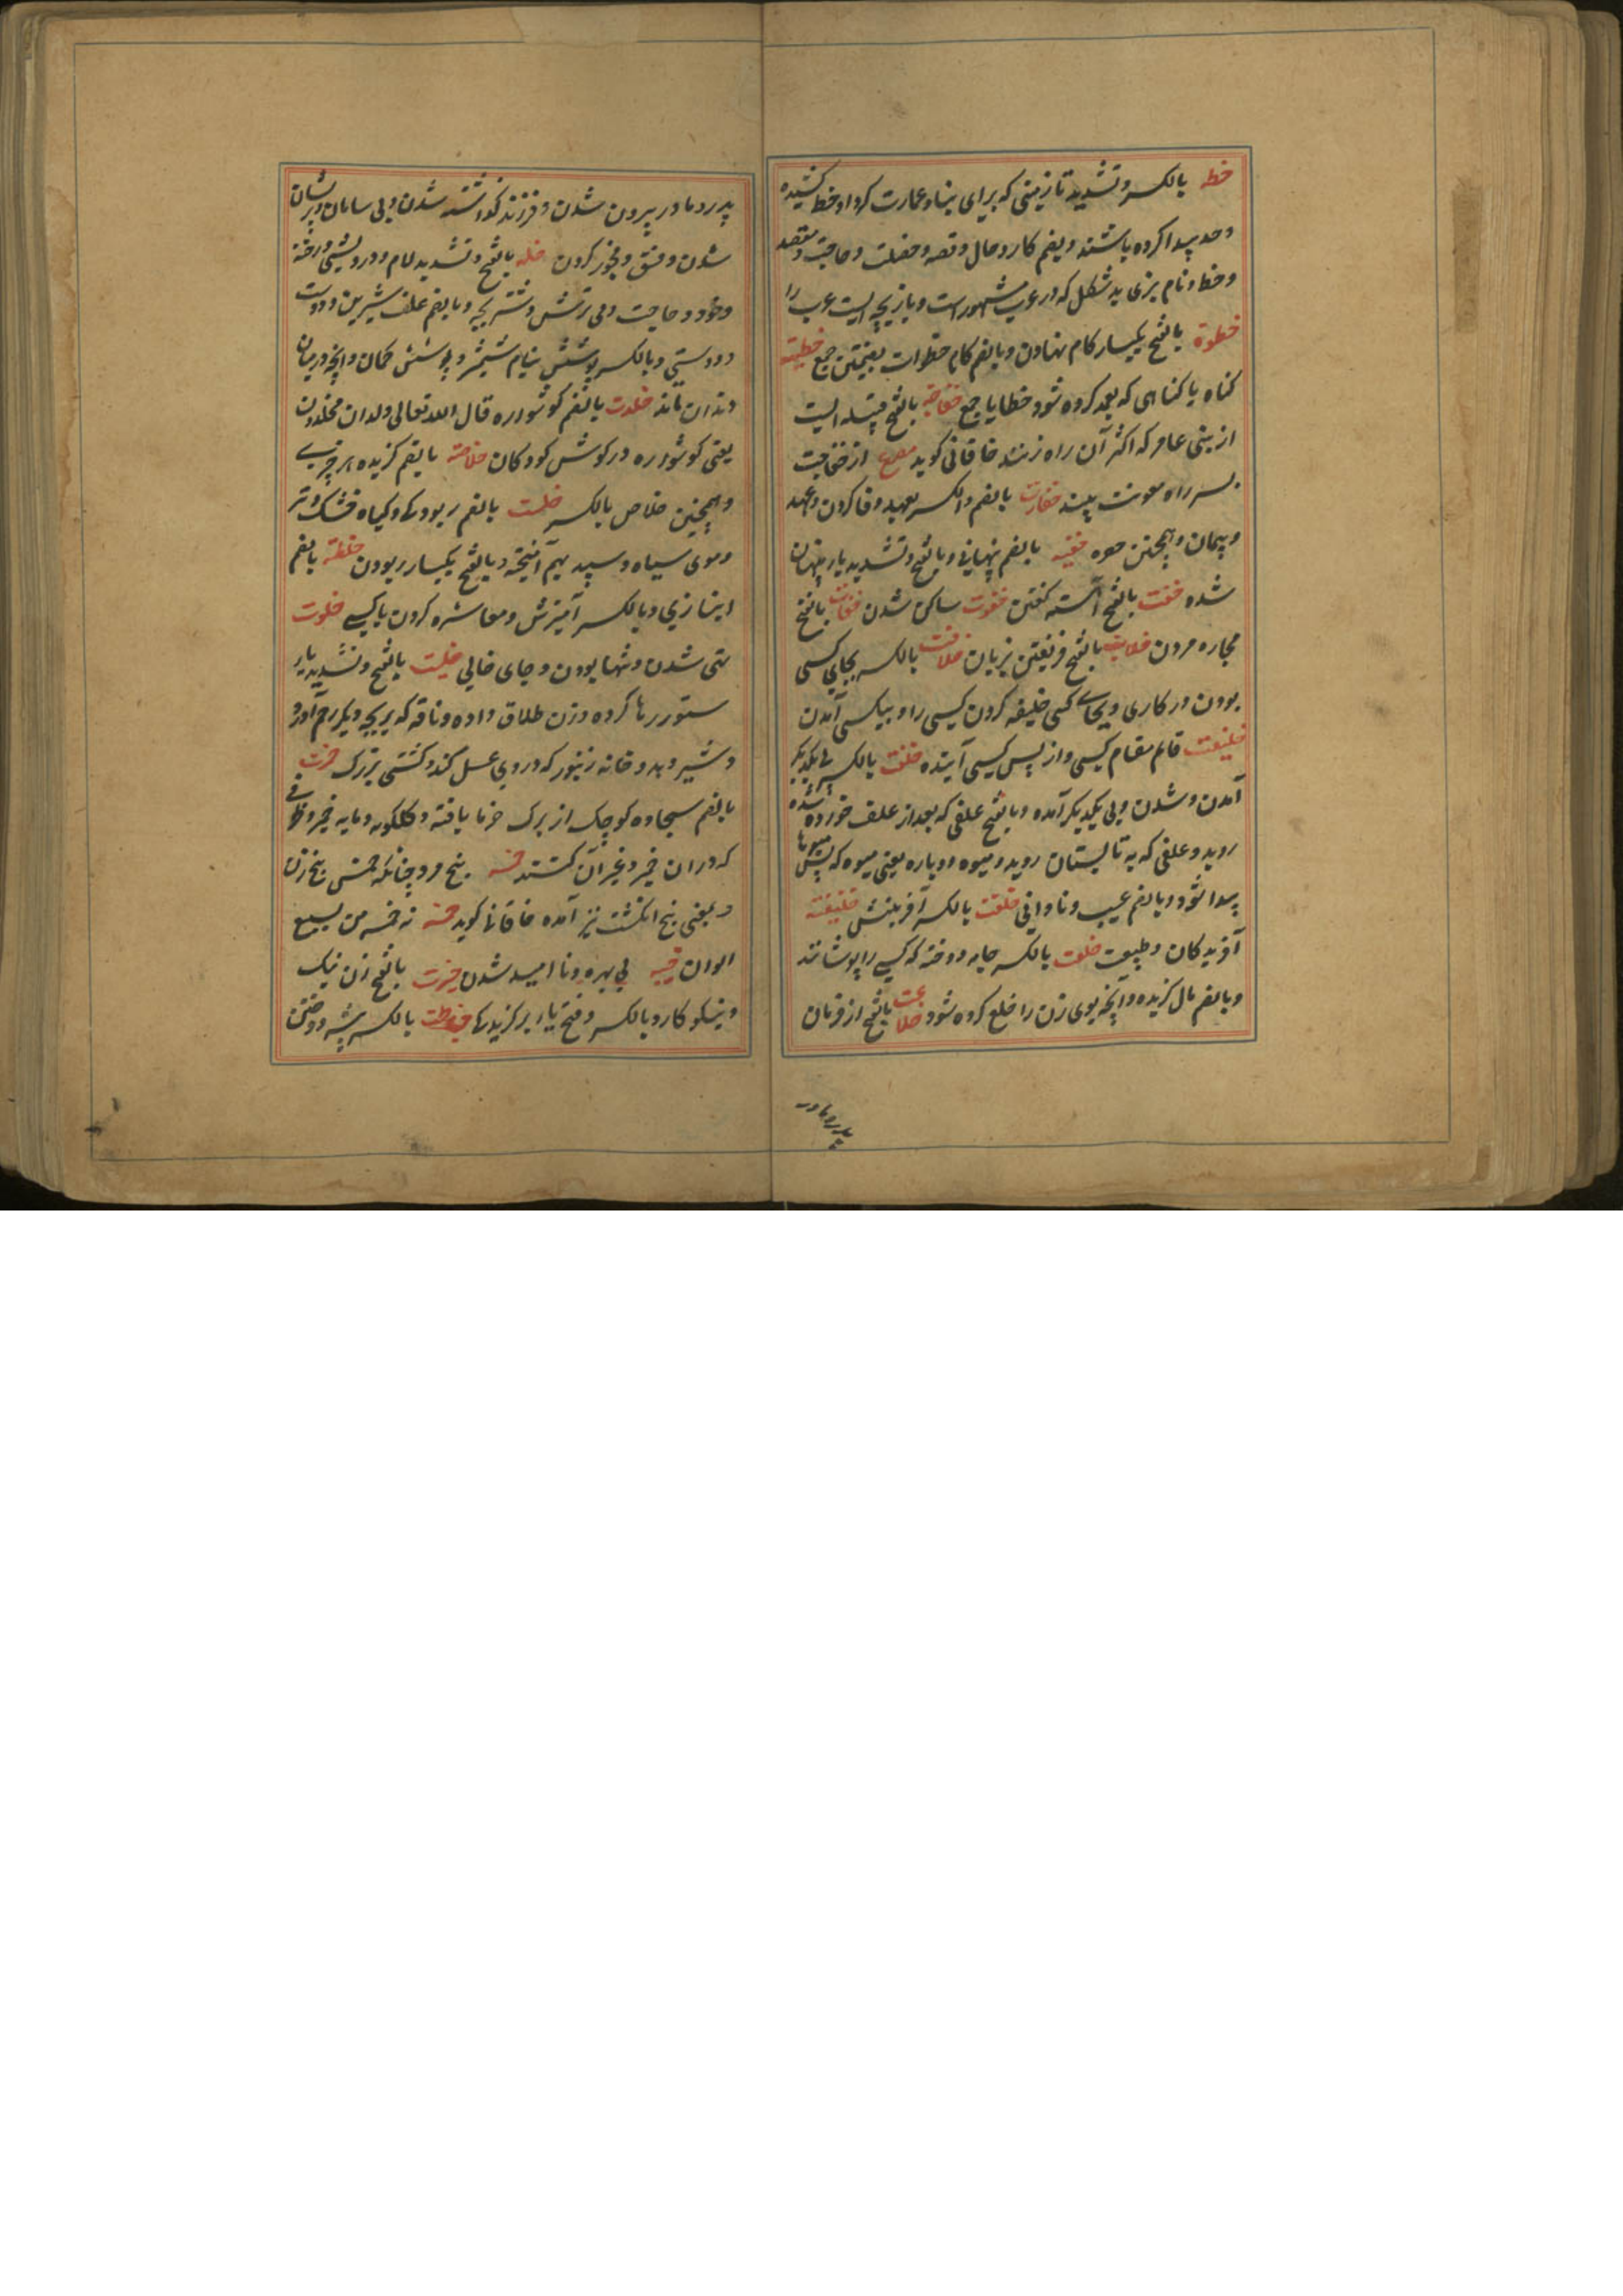 خطه بالکسر و تشدید تا زمینی که برای بنا و عمارت کرد او خط کشیده
و حد پیدا کرده باشند و بضم کار و حال و قصه و خصلت و حاجت و مقصد
و خط و نام بزی بد شکل که در عرب مشهور است و بازیچه ایست عرب را
خطوة بالفتح یکبار کام نهادن و بالضم کام خطوات بضمتین جمع خطیئه
کناه یا کناهی که بعمد کرده شود خطایا جمع خفاجه بالفتح قبیله ایست
از بنی عامر که اکثر آن راه زنند خاقانی کوید مصرع از خفاجت
بسر راه معونت بینند خفارت بالضم و الکسر بعهد وفا کردن و عهد
و پیمان و همچنین خفیه بالضم پنهانی و بالفتح و تشدید یا پنهان
شده خفت بالفتح آهسته کفتن خفوت ساکن شدن خفات بالفتح
مجاره مردن خلابت بالفتح فریفتن بزبان خلافت بالکسر بجای کسی
بودن در کاری و بجای کسی خلیفه کردن کسی را و بپاکسی آمدن
خلیفت قائم مقام کسی و از پس کسی آینده خلفت بالکسر پی یکدیکر
آمدن و شدن و پی یکدیکر آمده و بالفتح علفی که بعد از علف خورده شده
روید و علفی که به تابستان روید و میوه دوباره یعنی میوه که پس میوها
پیدا شود و بالضم عیب و نادانی خلقت بالکسر آفرینش خلیقته
آفریدکان و طبیعت خلعت بالکسر جامه دوخته که کسی را پوشانند
و بالضم مال کزیده و آنچه بوی زن را خلع کرده شود خلاعت بالفتح از فرمان
پدر و مادر
پدر و مادر بیرون شدن و فرزند کذاشته شدن و بی سامان و پریشان
شدن و فسق و فجور کردن خله بالفتح و تشدید لام و درویشی و رخنه
و خود و حاجت و می ترش و شتر بچه و بالضم علف شیرین و دوست
و دوستی و بالکسر پوشش نیام شمشیر و پوشش کمان و آنچه در میان
دندان ماند خلدت بالضم کوشواره قال الله تعالی ولدان مخلدون
یعنی کوشواره در کوش کودکان خلاصة بالضم کزیده هر چیزی
و همچنین خلاص بالکسر خلست بالضم ربودها و کیاه خشک و تر
و موی سیاه و سپید بهم آمیخته و بالفتح یکبار ربودن خلطة بالضم
انبازی و بالکسر آمیزش و معاشره کردن با کسی خلوت
تهی شدن و تنها بودن و جای خالی خلیت بالفتح و تشدید یا
ستور رها کرده و زن طلاق داده و ناقه که بر بچه دیکر رحم آورد
و شیر دهد و خانه زنبور که در وی عسل کند و کشتی بزرک خمرت
بالضم سجاده کوچک از برک خرما بافته و کلکونه و مایه خمیر و ظرفی
که در ان خمیر و غیر آن کنند خمسه پنج مرد چنانکه خمس پنج زن
و بمعنی پنج انکشت نیز آمده خاقانی کوید خمسه نه خمسه من بسبع
الوان خیبه بی بهره و ناامید شدن خیرت بالفتح زن نیک
و نیکو کار و بالکسر و فتح یاء برکزیدها خیاطت بالکسر پیشه دوختن